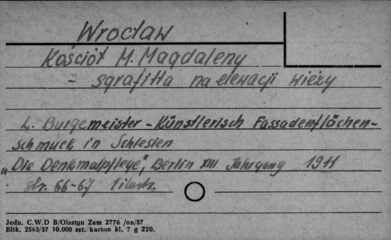 Wrocław
Kościół M. Magdaleny
- sgrafitta na elewacji wieży
L. Burgemeister - Künstlerisch Fassadenflächen-
schmuck in Schlesien
"Die Denkmalpflege", Berlin XIII Jahrgang 1911
str. 66-67 1 ilustr.
Jedn. C.W.D B/Olsztyn Zam 2776 /on/57
Bltk. 2563/57 10.000 szt. karton kl. 7 g 220.